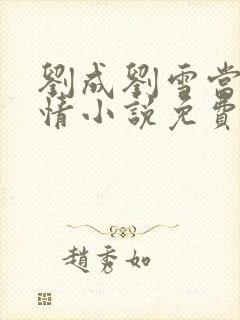 劉成劉雪當
情小說免費
趙秀如